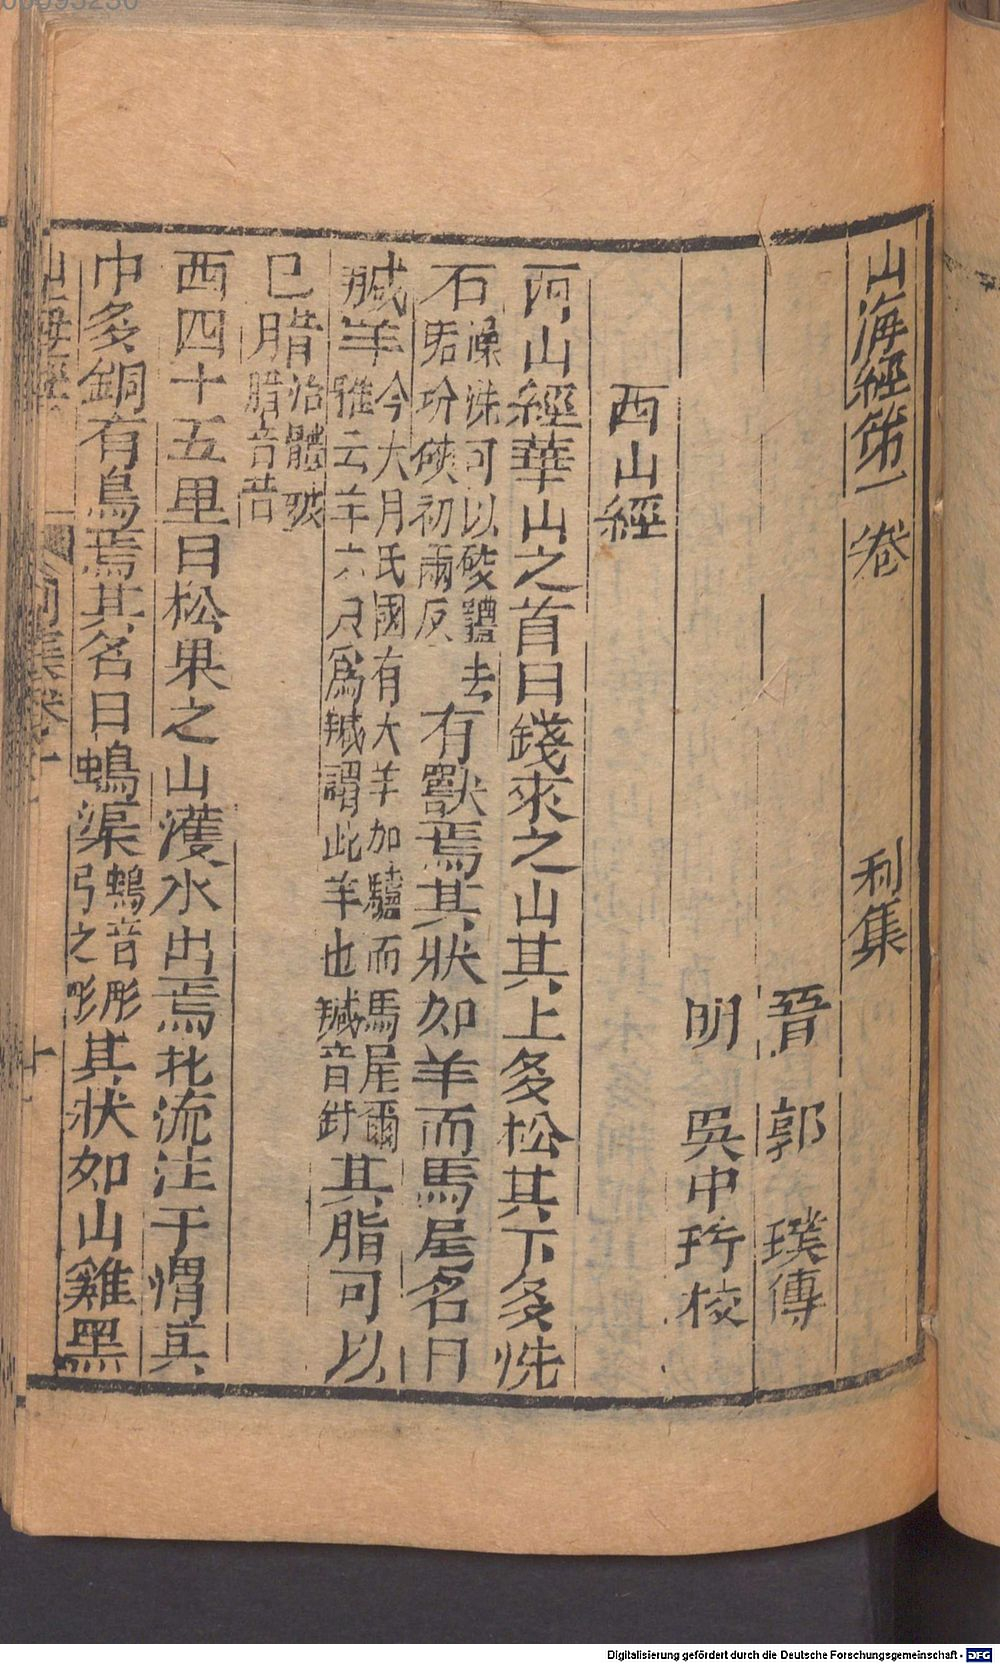 山海經第一卷　利集
晉　郭　璞傳
明　吳中珩校
西山經
西山經華山之首曰錢來之山其上多松其下多洗
石澡洗可以䃮體去垢圿磢初兩反有獸焉其狀如羊而馬尾名曰
羬羊今大月氏國有大羊如驢而馬尾爾雅云羊六尺爲羬謂此羊也羬音針其脂可以
已腊治體皴腊音昔
西四十五里曰松果之山濩水出焉北流注于渭其
中多銅有鳥焉其名曰䳋渠䳋音彤弓之彤其狀如山雞黑
Digitalisierung gefördert durch die Deutsche Forschungsgemeinschaft - DFG